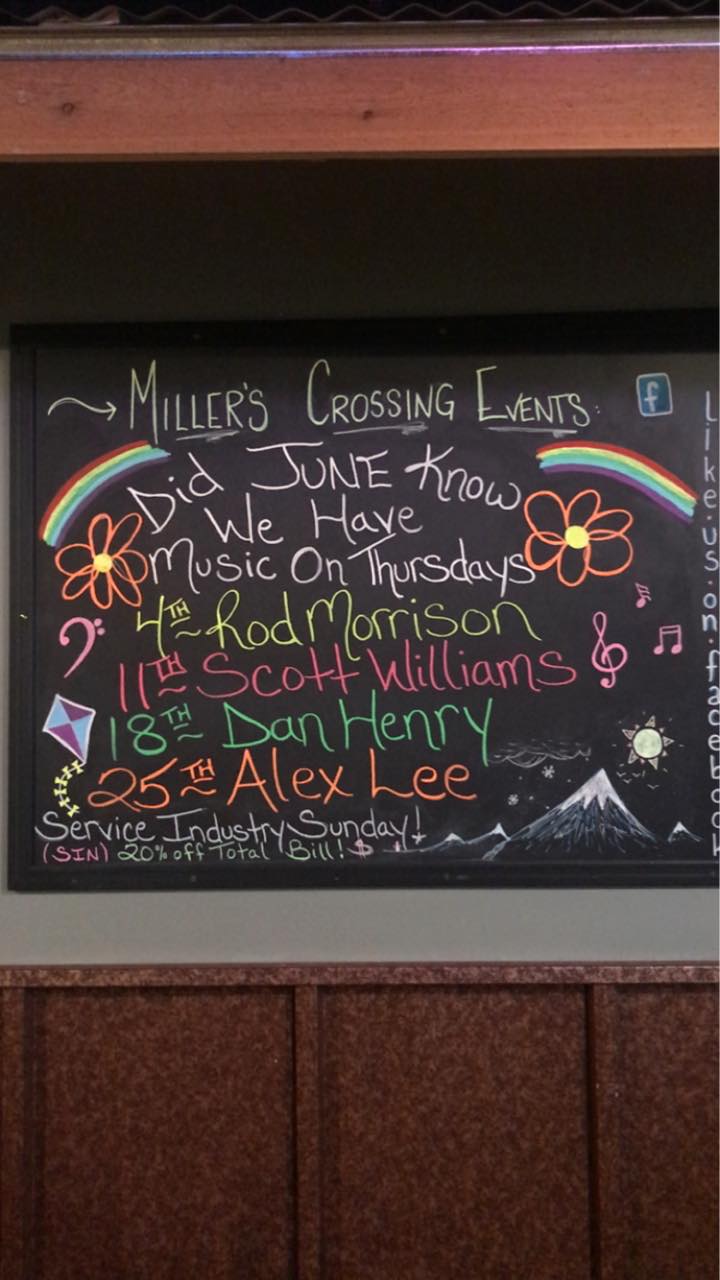 MILLER'S CROSSING EVENTS:
Did JUNE Know
We Have
Music On Thursdays
4TH Rod Morrison
11TH Scott Williams
18TH Dan Henry
25TH Alex Lee
Service Industry Sunday!
(SIN) 20% off Total Bill! $
f
like·us·on·facebook